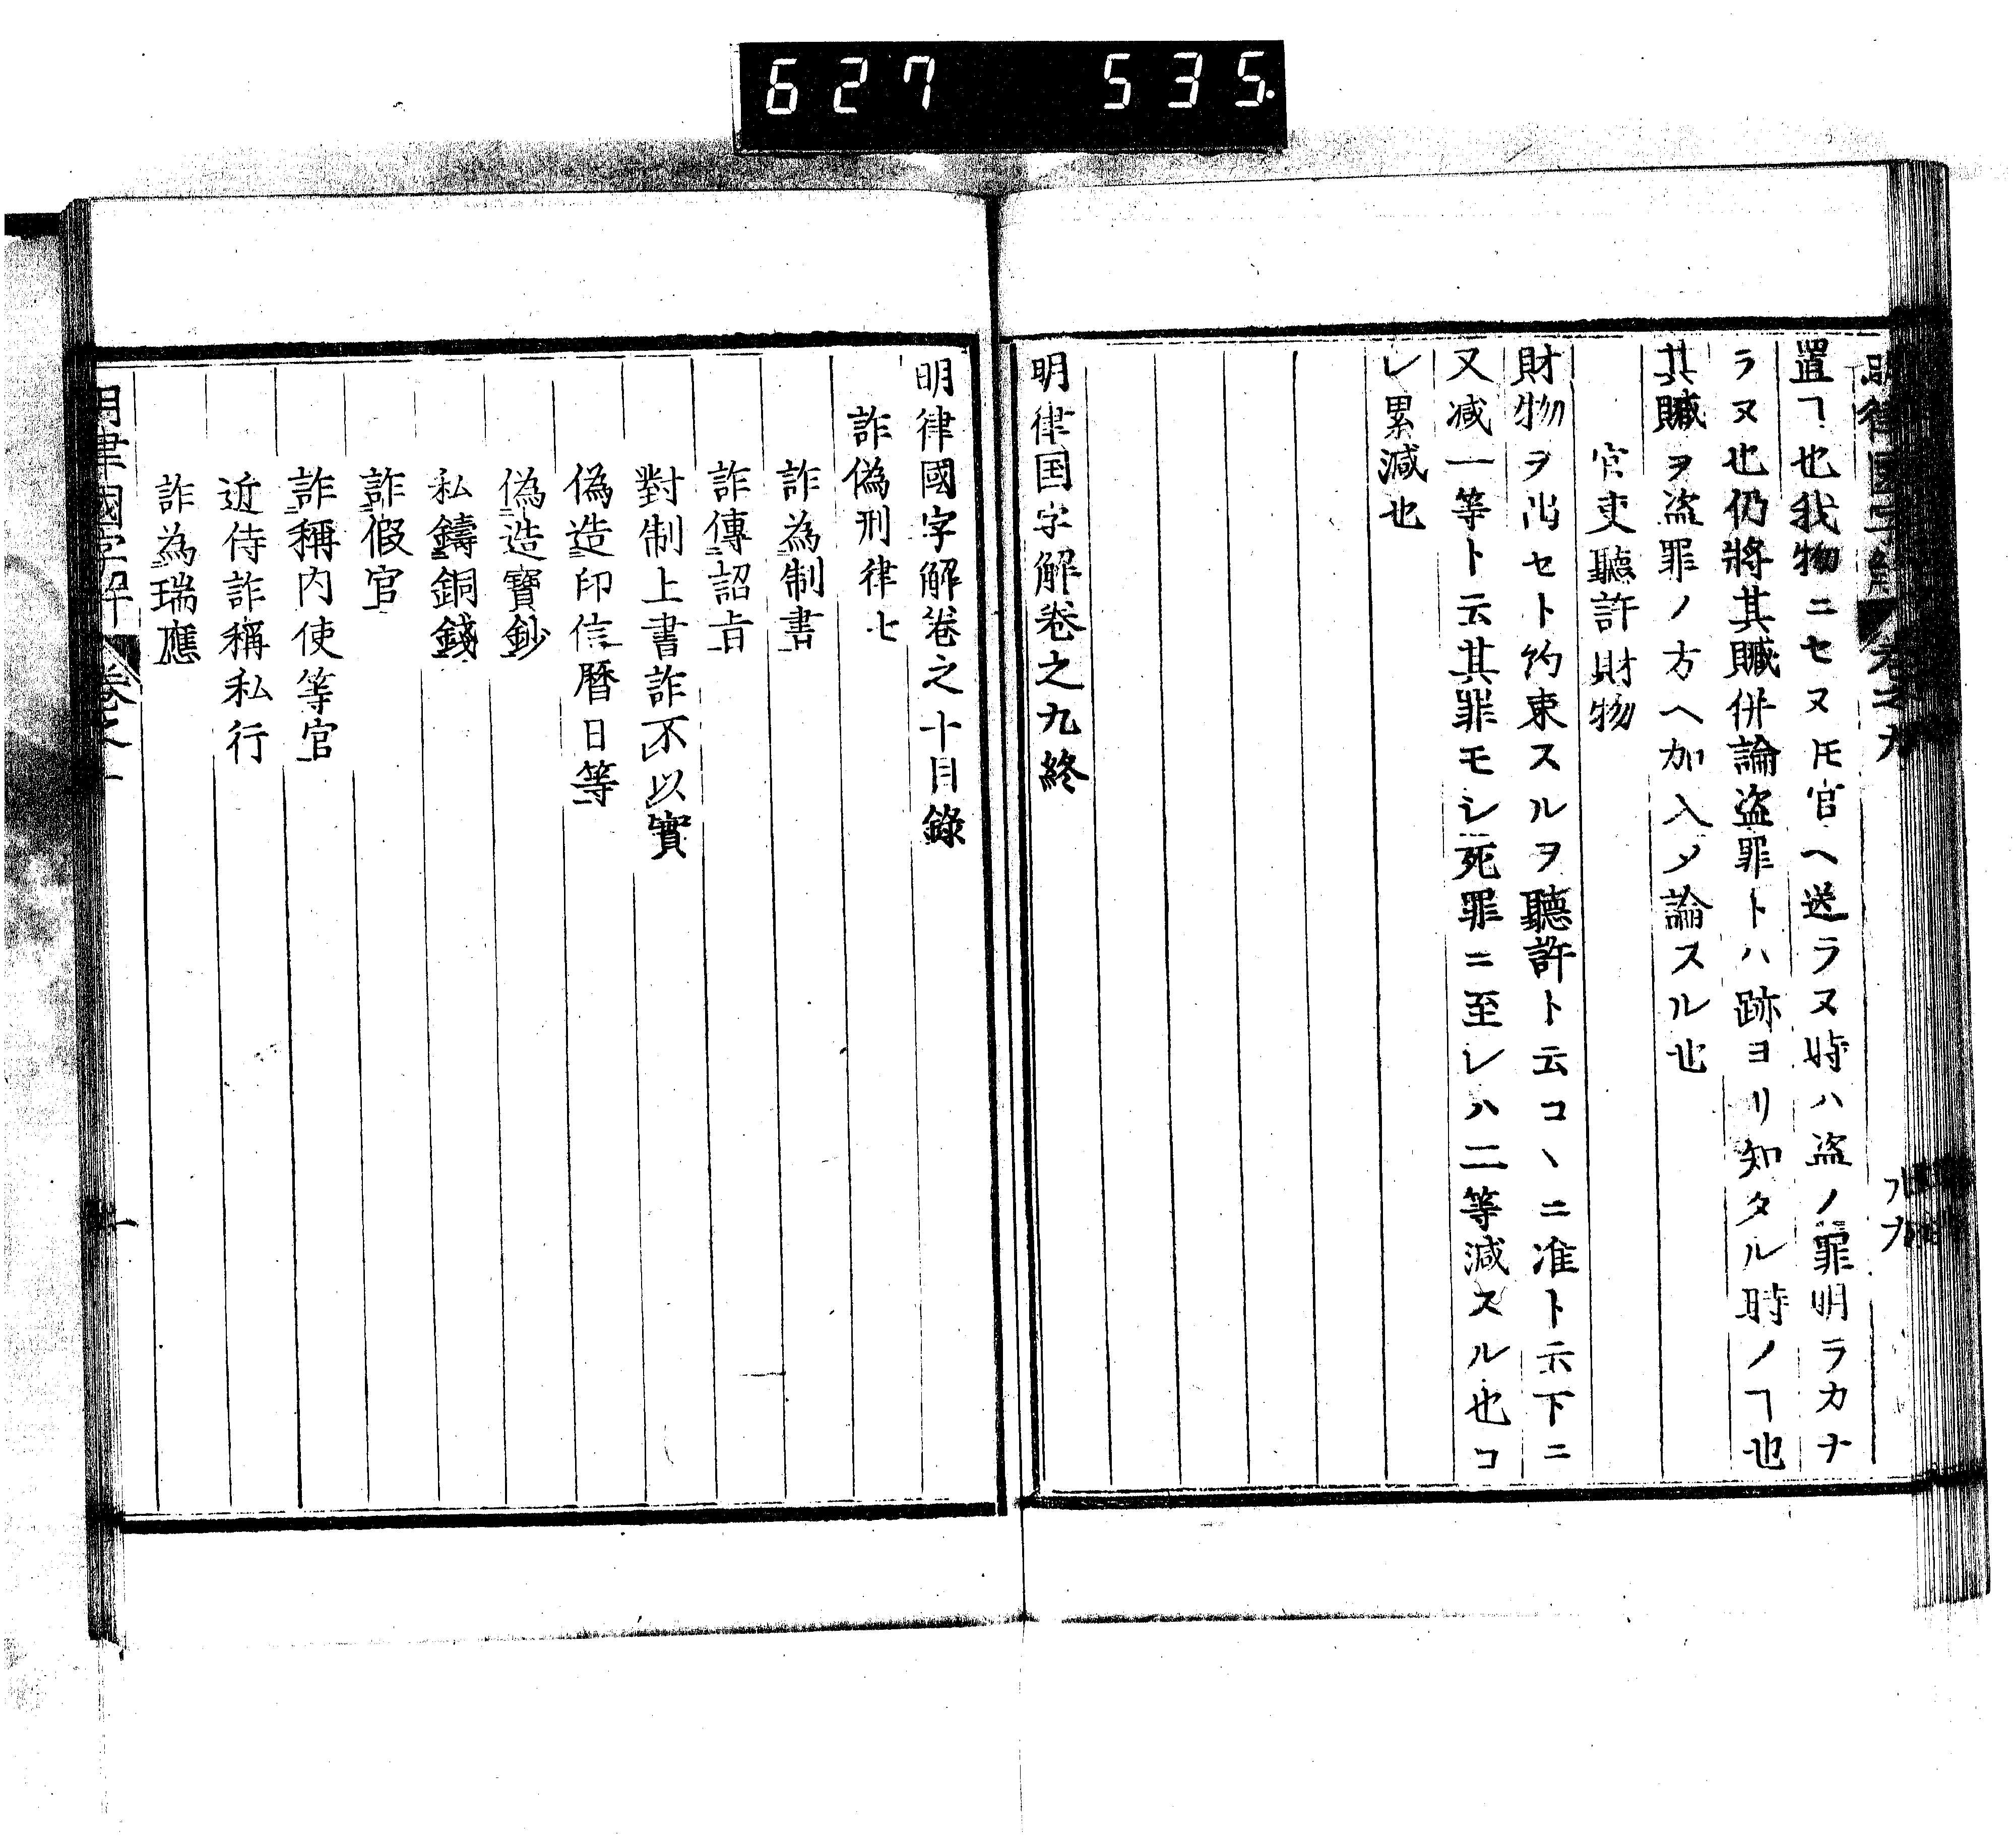 627 535.
置ヿ也我物ニセヌ𪜈官ヘ送ラヌ時ハ盗ノ罪明ラカナ
ラヌ也仍將其贓併論盗罪トハ跡ヨリ知タル時ノヿ也
其贓ヲ盗罪ノ方ヘ加入メ論スル也
官吏聽許財物
財物ヲ出セト約束スルヲ聽許ト云コヽニ准ト示下ニ
又減一等ト云其罪モシ死罪ニ至レハ二等減スル也コ
レ累減也
明律国字解卷之九終
明律國字解卷之十目錄
詐偽刑律七
詐為制書
詐傳詔旨
對制上書詐不以實
偽造印信曆日等
偽造寶鈔
私鑄銅錢
詐假官
詐稱內使等官
近侍詐稱私行
詐為瑞應